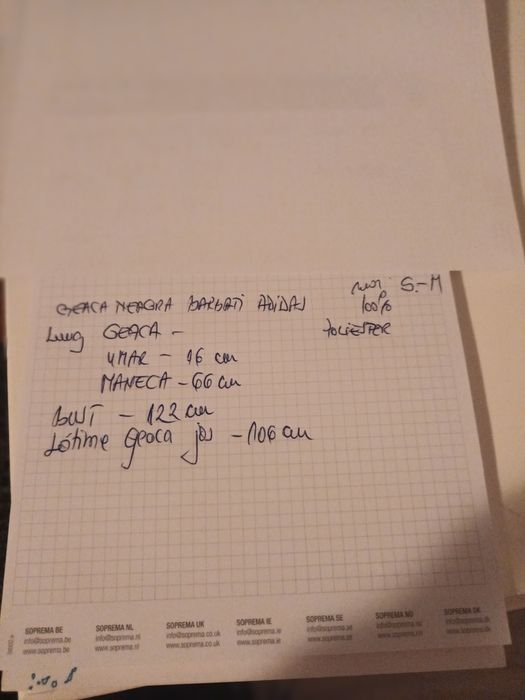 S-M
GEACA NEAGRA BARBATI ADIDAS
100%
POLIESTER
Lung GEACA -
UMAR - 16 cm
MANECA - 66 cm
BUST - 122 cm
Lătime geaca jos - 106 cm
SOPREMA BE
info@soprema.be
www.soprema.be
SOPREMA NL
info@soprema.nl
www.soprema.nl
SOPREMA UK
info@soprema.co.uk
www.soprema.co.uk
SOPREMA IE
info@soprema.ie
www.soprema.ie
SOPREMA SE
info@soprema.se
www.soprema.se
SOPREMA NO
info@soprema.no
www.soprema.no
SOPREMA DK
info@soprema.dk
www.soprema.dk